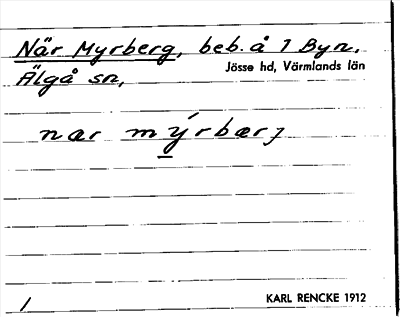 När Myrberg, beb. å 1 Byn,
Jösse hd, Värmlands län
Älgå sn,
nær mýrbærj
1
KARL RENCKE 1912